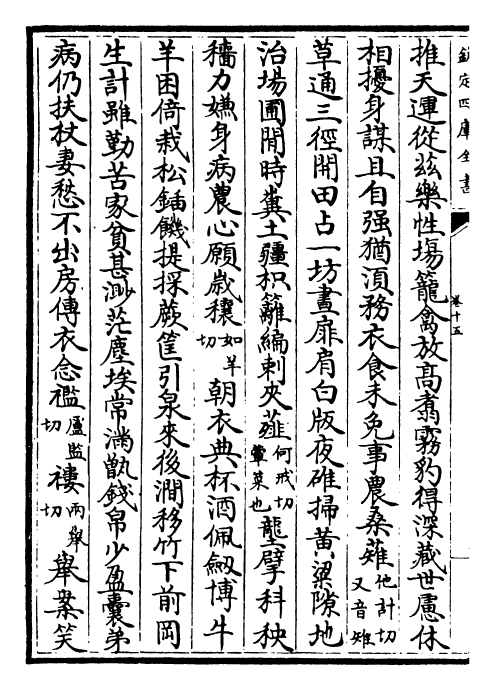 欽定四庫全書
卷十五
推天運從兹樂性場籠禽放髙翥霧豹得深藏世慮休
相擾身謀且自强猶須務衣食未免事農桑薙他計切又音雉
草通三徑開田占一坊晝扉扃白版夜碓掃黄粱隙地
治場圃閒時糞土疆枳籬編刺夾薤何戒切葷菜也壟擘科秧
穡力嫌身病農心願嵗穰如羊切朝衣典杯酒佩劒博牛
羊困倚栽松鍤饑提採蕨筐引泉來後澗移竹下前岡
生計雖勤苦家貧甚渺茫塵埃常滿甑錢帛少盈囊弟
病仍扶杖妻愁不出房傳衣念襤盧監切褸兩舉切舉案笑